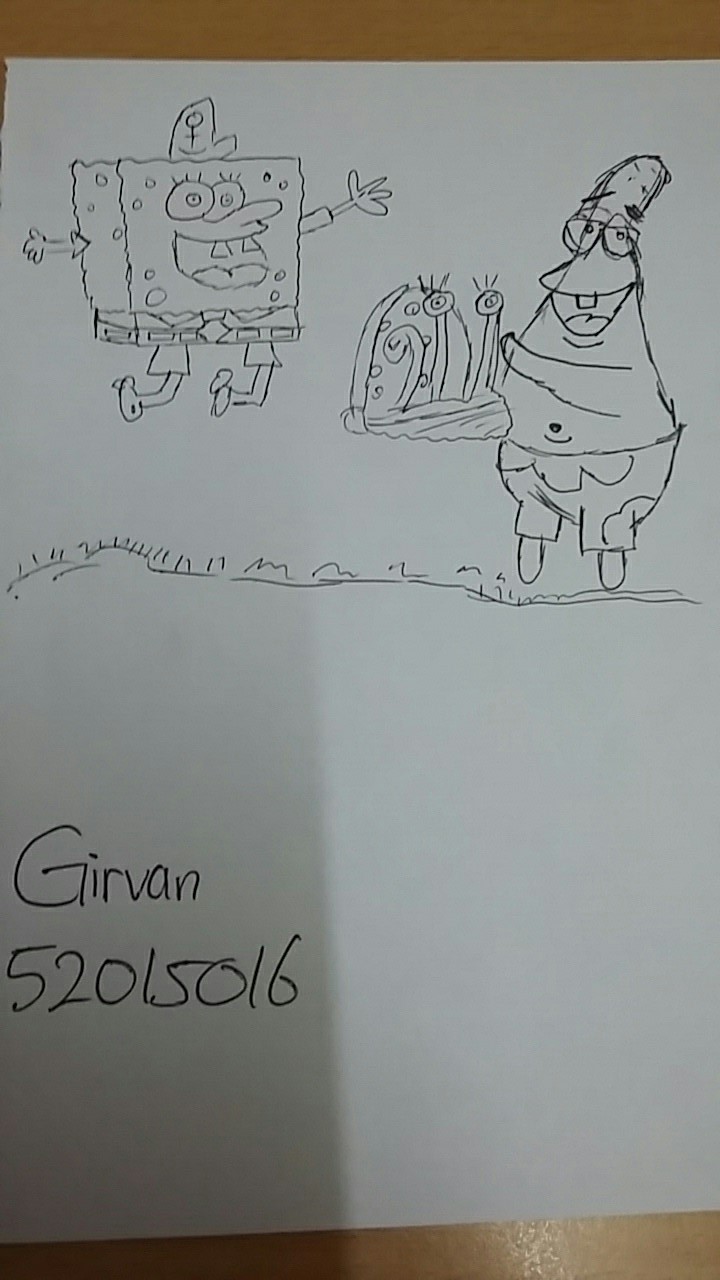 Girvan
52015016